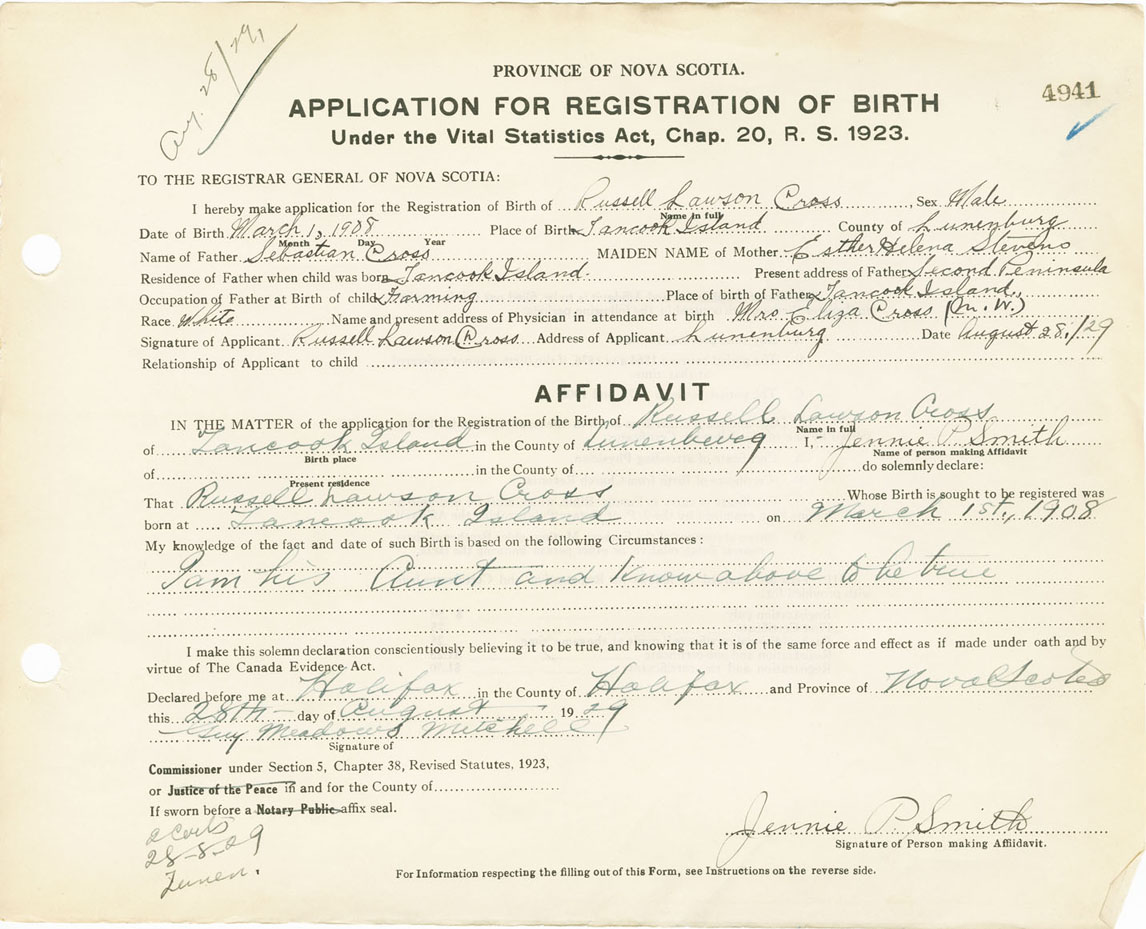 Aug. 28/29,
PROVINCE OF NOVA SCOTIA.
4941
APPLICATION FOR REGISTRATION OF BIRTH
Under the Vital Statistics Act, Chap. 20, R. S. 1923.
TO THE REGISTRAR GENERAL OF NOVA SCOTIA:
I hereby make application for the Registration of Birth of Russell Lawson Cross, Sex Male
Name in full
Date of Birth March 1, 1908 Place of Birth Tancook Island County of Lunenburg
Month Day Year
Name of Father Sebastian Cross MAIDEN NAME of Mother Esther Helena Stevens
Residence of Father when child was born Tancook Island. Present address of Father Second Peninsula
Occupation of Father at Birth of child Farming Place of birth of Father Tancook Island.
Race White Name and present address of Physician in attendance at birth Mrs Eliza Cross (M.W.)
Signature of Applicant Russell Lawson Cross Address of Applicant Lunenburg Date August 28./29
Relationship of Applicant to child
AFFIDAVIT
IN THE MATTER of the application for the Registration of the Birth of Russell Lawson Cross
Name in full
of Tancook Island in the County of Lunenburg I, Jennie P. Smith
Birth place Name of person making Affidavit
of in the County of do solemnly declare:
Present residence
That Russell Lawson Cross Whose Birth is sought to be registered was
born at Tancook Island on March 1st., 1908
My knowledge of the fact and date of such Birth is based on the following Circumstances :
I am his Aunt and know above to be true
I make this solemn declaration conscientiously believing it to be true, and knowing that it is of the same force and effect as if made under oath and by
virtue of The Canada Evidence Act.
Declared before me at Halifax in the County of Halifax and Province of Nova Scotia
this 28th day of August 1929
Guy Meadows Mitchell
Signature of
Commissioner under Section 5, Chapter 38, Revised Statutes, 1923,
or Justice of the Peace in and for the County of
If sworn before a Notary Public affix seal.
28-8-29
Lunen.
Jennie P. Smith
Signature of Person making Affidavit.
For Information respecting the filling out of this Form, see Instructions on the reverse side.